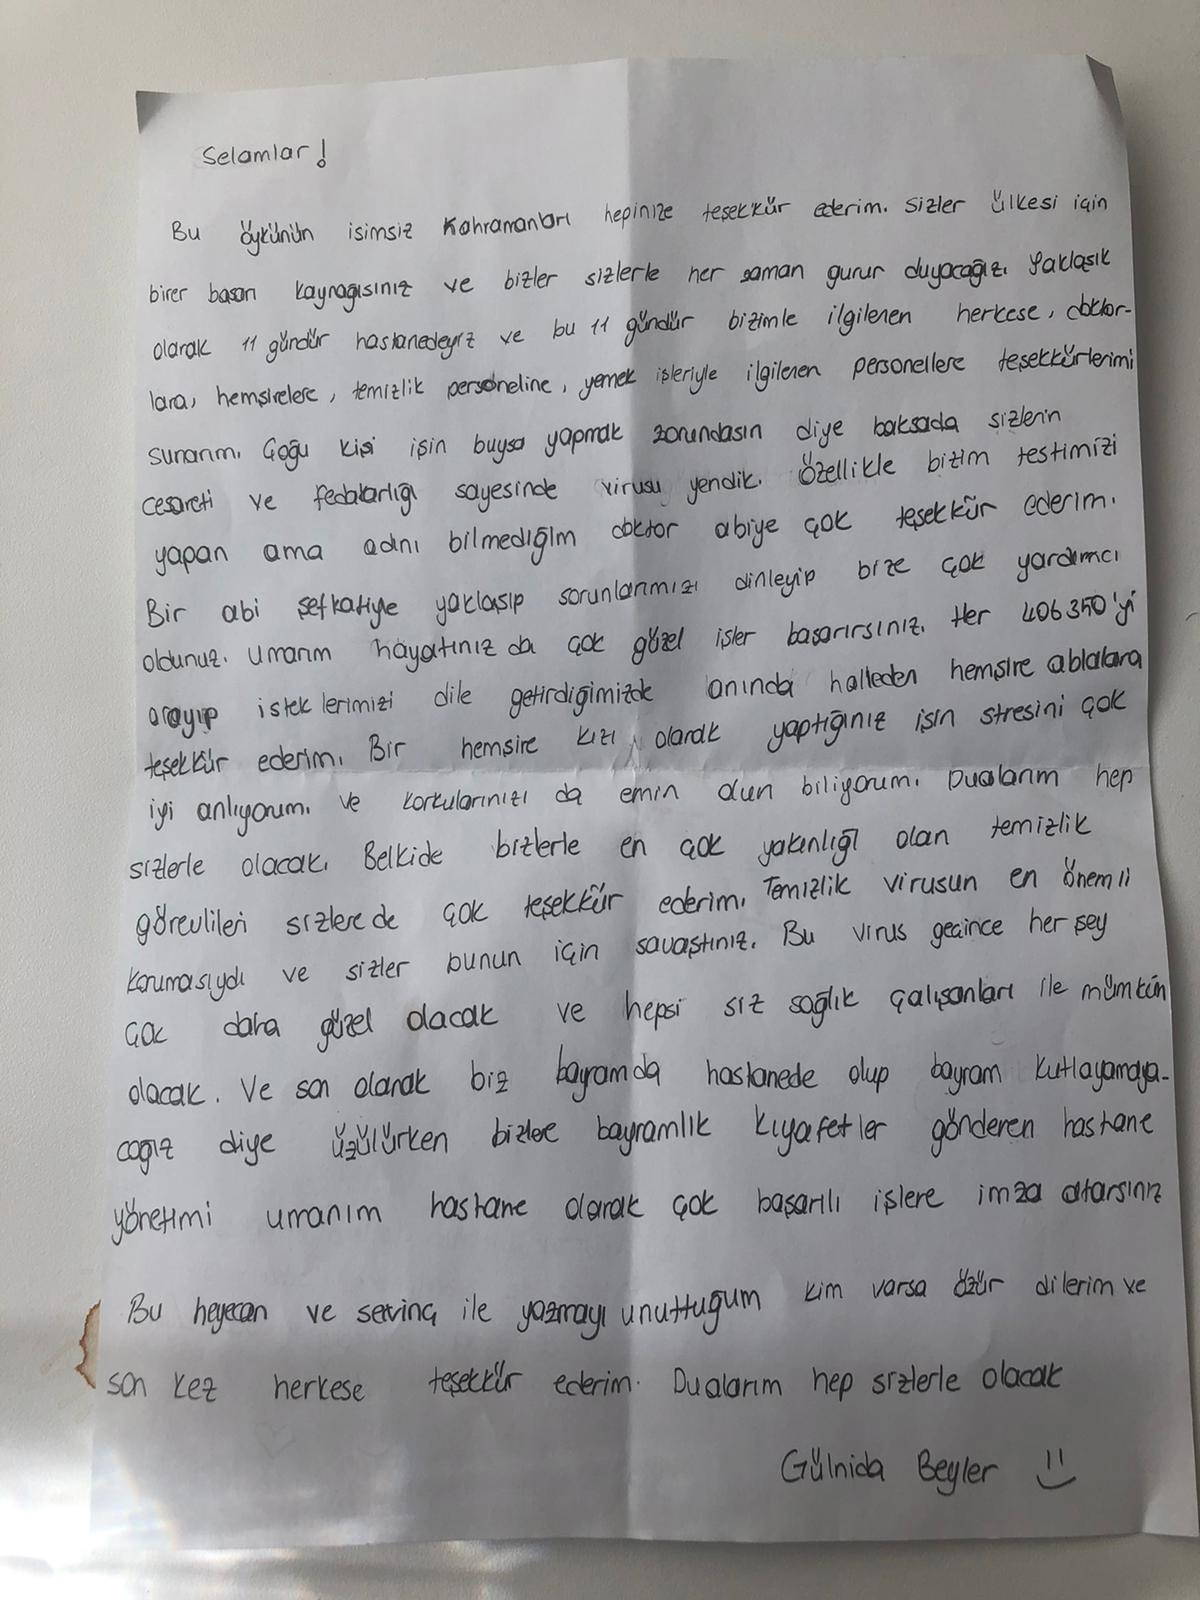 Selamlar!
Bu öykünün isimsiz Kahramanları hepinize teşekkür ederim. Sizler ülkesi için
birer başarı kaynağısınız ve bizler sizlerle her zaman gurur duyacağız. Yaklaşık
olarak 11 gündür hastanedeyiz ve bu 11 gündür bizimle ilgilenen herkese, doktor-
lara, hemşirelere, temizlik personeline, yemek işleriyle ilgilenen personellere teşekkürlerimi
sunarım. Çoğu kişi işin buysa yapmak zorundasın diye baksada sizlerin
cesareti ve fedakarlığı sayesinde virusu yendik. Özellikle bizim testimizi
yapan ama adını bilmediğim doktor abiye çok teşekkür ederim.
Bir abi şefkatiyle yaklaşıp sorunlarımızı dinleyip bize çok yardımcı
oldunuz. Umarım hayatınız da çok güzel işler başarırsınız. Her 406350'yi
arayıp isteklerimizi dile getirdiğimizde anında halleden hemşire ablalara
teşekkür ederim. Bir hemşire kızı olarak yaptığınız işin stresini çok
iyi anlıyorum. ve korkularınızı da emin olun biliyorum. Dualarım hep
sizlerle olacak. Belkide bizlerle en çok yakınlığı olan temizlik
görevlileri sizlerede çok teşekkür ederim. Temizlik virusun en önemli
korumasıydı ve sizler bunun için savaştınız. Bu virus geçince her şey
çok daha güzel olacak ve hepsi siz sağlık çalışanları ile mümkün
olacak. Ve son olarak biz bayramda hastanede olup bayram kutlayamaya-
cağız diye üzülürken bizlere bayramlık kıyafetler gönderen hastane
yönetimi umarım hastane olarak çok başarılı işlere imza atarsınız
Bu heyecan ve sevinç ile yazmayı unuttuğum kim varsa özür dilerim ve
son kez herkese teşekkür ederim. Dualarım hep sizlerle olacak
Gülnida Beyler